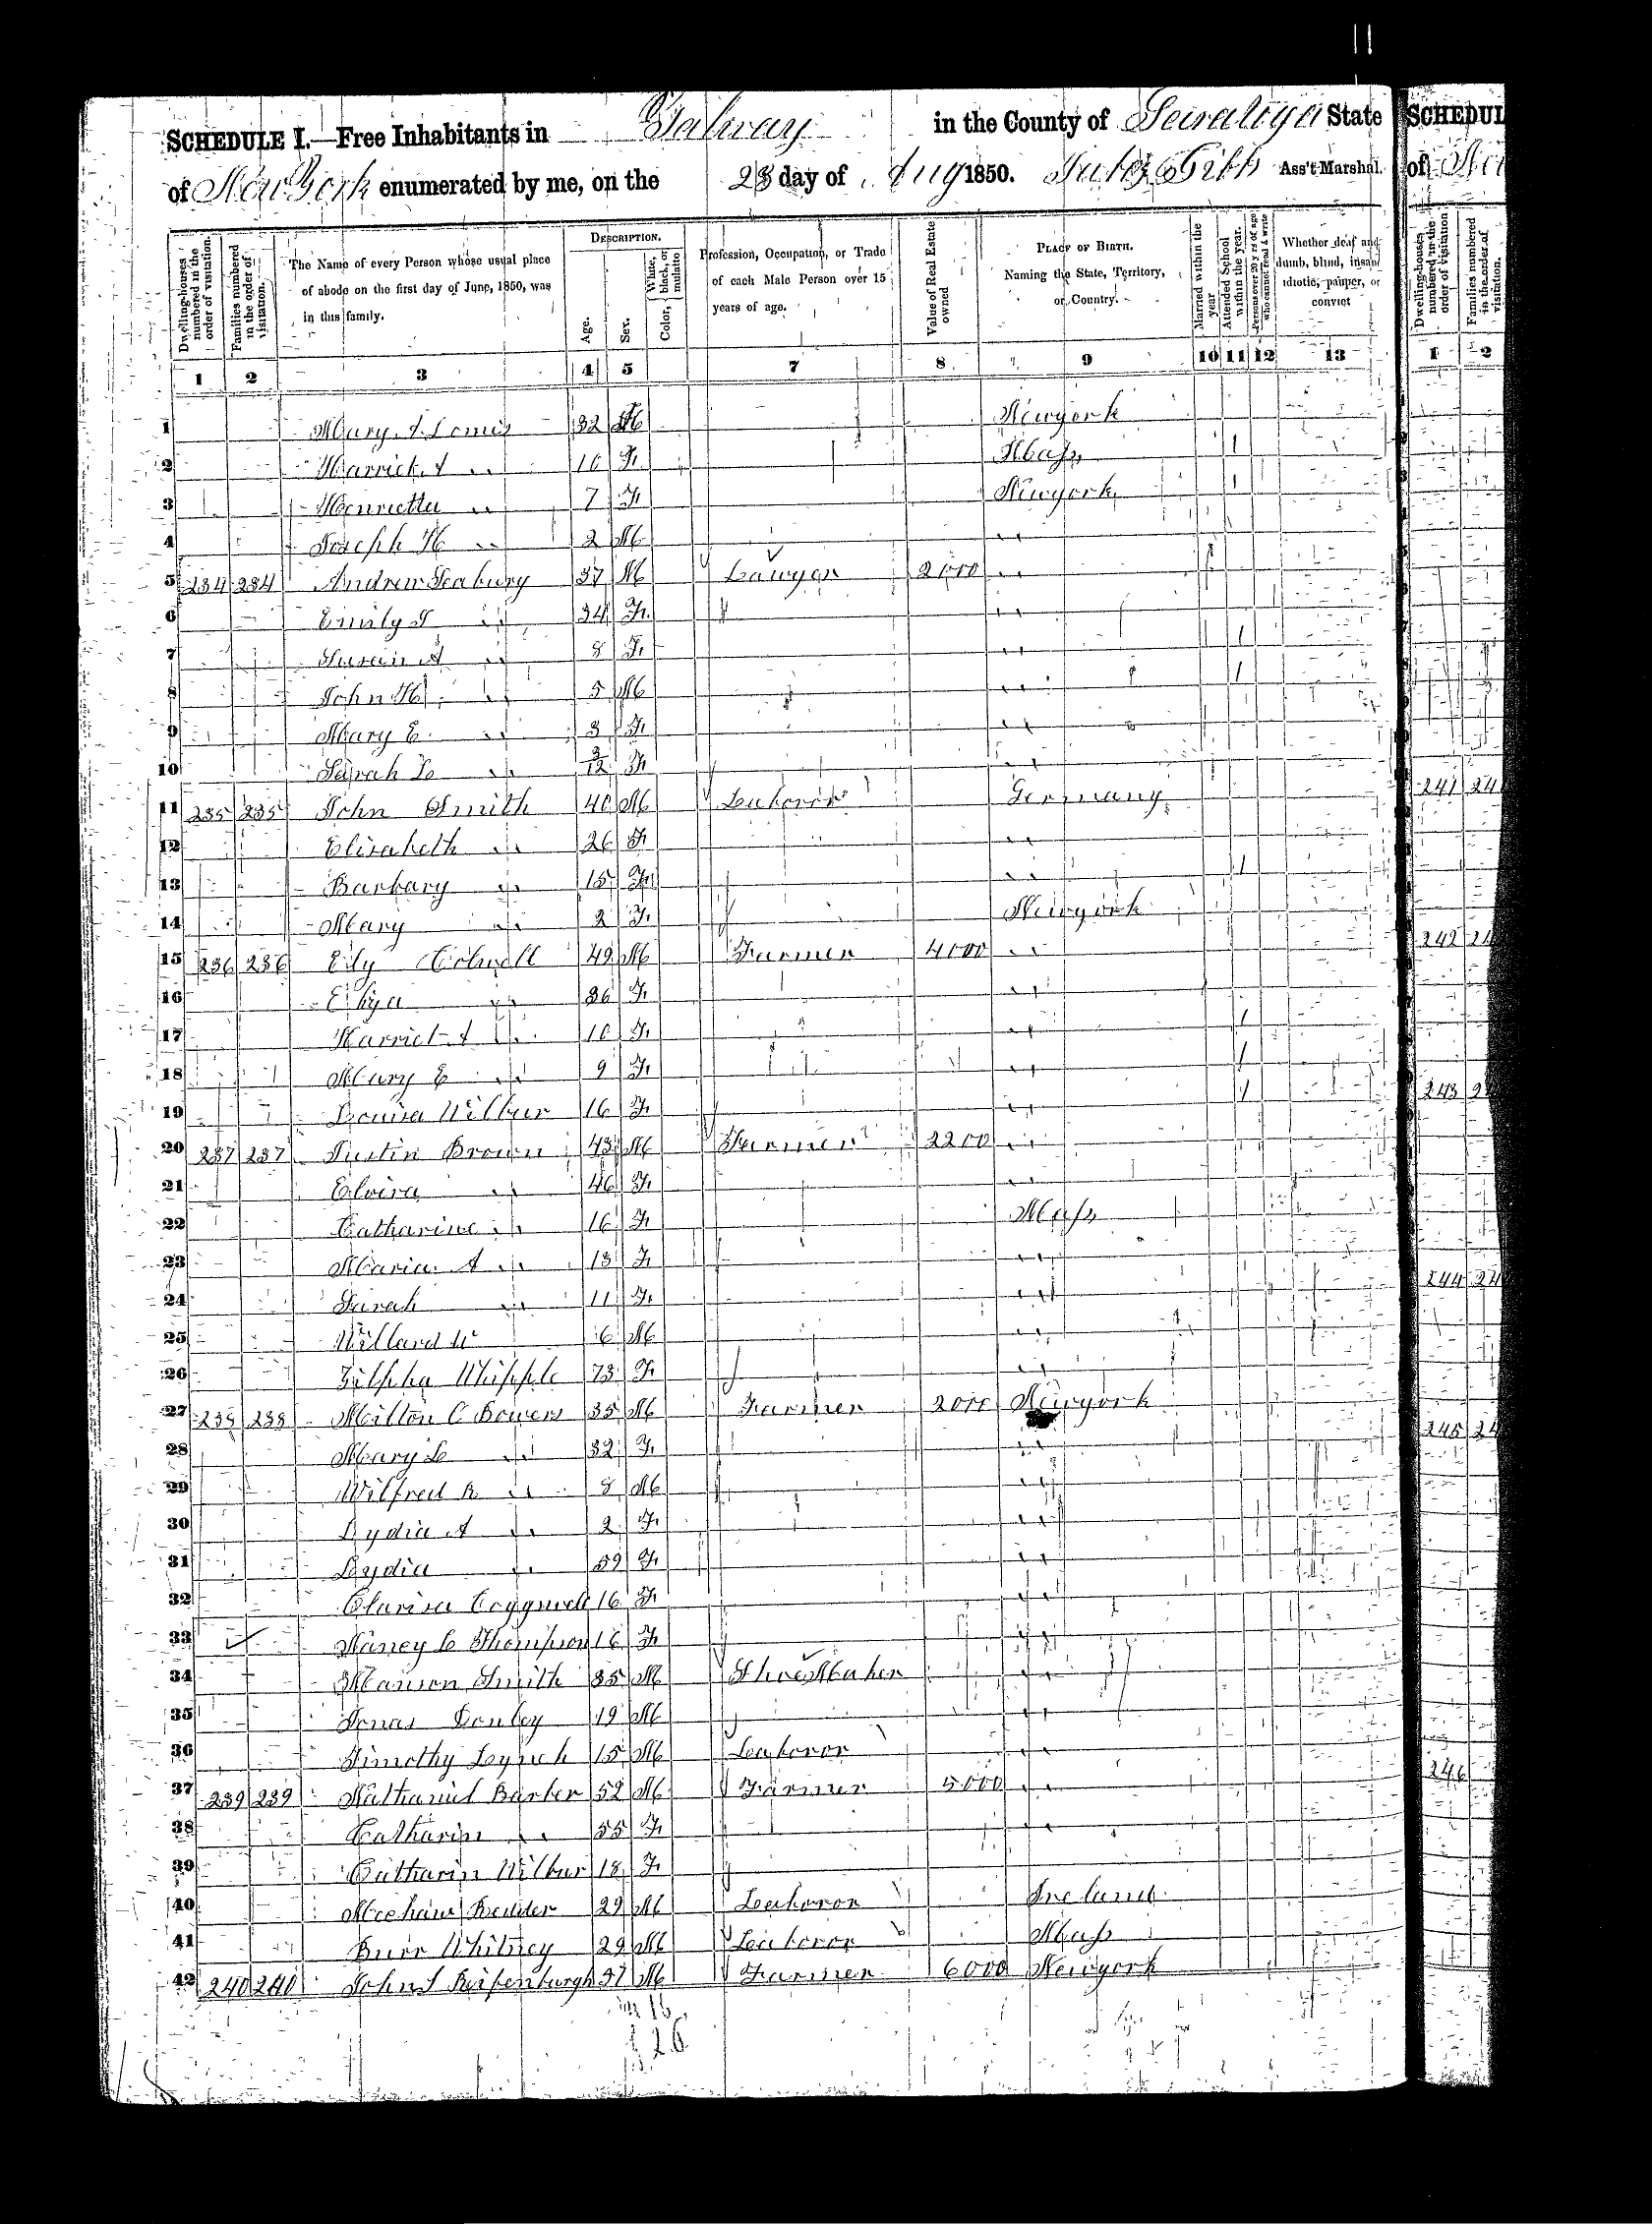 SCHEDULE I.—Free Inhabitants in Galway in the County of Saratoga State
of New York enumerated by me, on the 28 day of Aug 1850. Ass't Marshal.
Dwelling-houses numbered in the order of visitation.
Families numbered in the order of visitation.
The Name of every Person whose usual place of abode on the first day of June, 1850, was in this family.
DESCRIPTION.
Age.
Sex.
Color, White, black, or mulatto
Profession, Occupation, or Trade of each Male Person over 15 years of age.
Value of Real Estate owned
PLACE OF BIRTH. Naming the State, Territory, or Country.
Married within the year
Attended School within the year.
Persons over 20 y'rs of age who cannot read & write
Whether deaf and dumb, blind, insane idiotic, pauper, or convict
1 2 3 4 5 7 8 9 10 11 12 13
1 Mary A 32 Newyork
2 Harriet A " 10 F Mass 1
3 Henrietta " 7 F Newyork 1
4 Joseph H " 2 M "
5 234 234 Andrew Seabury 37 M Lawyer 2000 "
6 Emily " 34 F "
7 Susan A " 8 F " 1
8 John H " 5 M " 1
9 Mary E " 3 F "
10 Sarah L " 3/12 F "
11 235 235 John Smith 40 M Laboror Germany
12 Elisabeth " 26 F "
13 Barbary " 15 F " 1
14 Mary " 2 F Newyork
15 236 236 Ely 49 M Farmer 4000 "
16 " 36 F "
17 Harriet A " 10 F " 1
18 Mary E " 9 F " 1
19 Louisa Wilbur 16 F " 1
20 237 237 Justin Brown 43 M Farmer 2200 "
21 Elvira " 46 F "
22 Catharine " 16 F Mass
23 Maria A " 13 F "
24 Sarah " 11 F "
25 Willard W 6 M "
26 Zilpha Whipple 73 F "
27 238 238 Milton C Bowers 35 M Farmer 2000 Newyork
28 Mary L " 32 F "
29 Wilfred R " 8 M "
30 Lydia A " 2 F "
31 Lydia " 59 F "
32 Clarisa Coggswell 16 F "
33 Nancy C Thompson 16 F "
34 Manson Smith 35 M ShoeMaker "
35 Jonas 19 M "
36 Timothy Lynch 15 M Laboror "
37 239 239 Nathaniel Barber 52 M Farmer 5000 "
38 Catharin " 55 F "
39 Catharin Wilbur 18 F "
40 29 M Laboror Ireland
41 Burr Whitney 29 M Laboror Mass
42 240 240 John Reifenburgh 37 M Farmer 6000 Newyork
16
26
SCHEDUL
of
Dwelling-houses numbered in the order of visitation
Families numbered in the order of visitation.
1 2
241 24
242 24
243 24
244 24
245 24
246